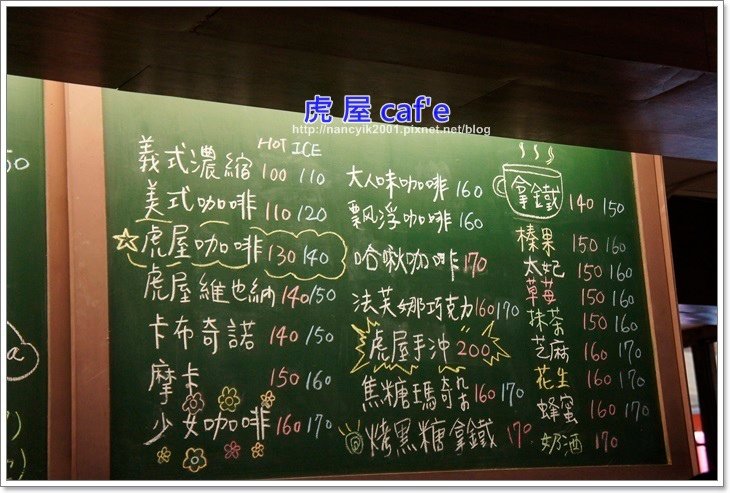 虎屋 caf'e
http://nancyik2001.pixnet.net/blog
HOT ICE
義式濃縮 100 110
美式咖啡 110 120
虎屋咖啡 130 140
虎屋維也納 140/150
卡布奇諾 140 150
摩卡 150 160
少女咖啡 160 170
大人味咖啡 160
飄浮咖啡 160
哈啾咖啡 170
法芙娜巧克力 160 170
虎屋手沖 200
焦糖瑪奇朵 160 170
烤黑糖拿鐵 170
拿鐵 140 150
榛果 150 160
太妃 150 160
草莓 150 160
抹茶 150 160
芝麻 160 170
花生 160 170
蜂蜜 160 170
奶酒 170
50
a